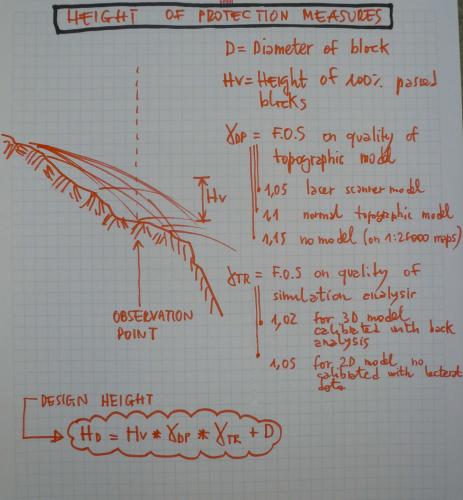 HEIGHT OF PROTECTION MEASURES
D = Diameter of block
Hv = Height of 100% passed
blocks
γDP = F.O.S on quality of
topographic model
1,05 lacer scanner model
1.1 normal topographic model
1,15 no model (on 1:25000 maps)
Hv
γTR = F.O.S on quality of
simulation analysir
1,02 for 3D model
calibrated with back
analysis
OBSERVATION
POINT
1,05 for 2D model no
calibrated with
data
DESIGN HEIGHT
HD = Hv * γDP * γTR + D